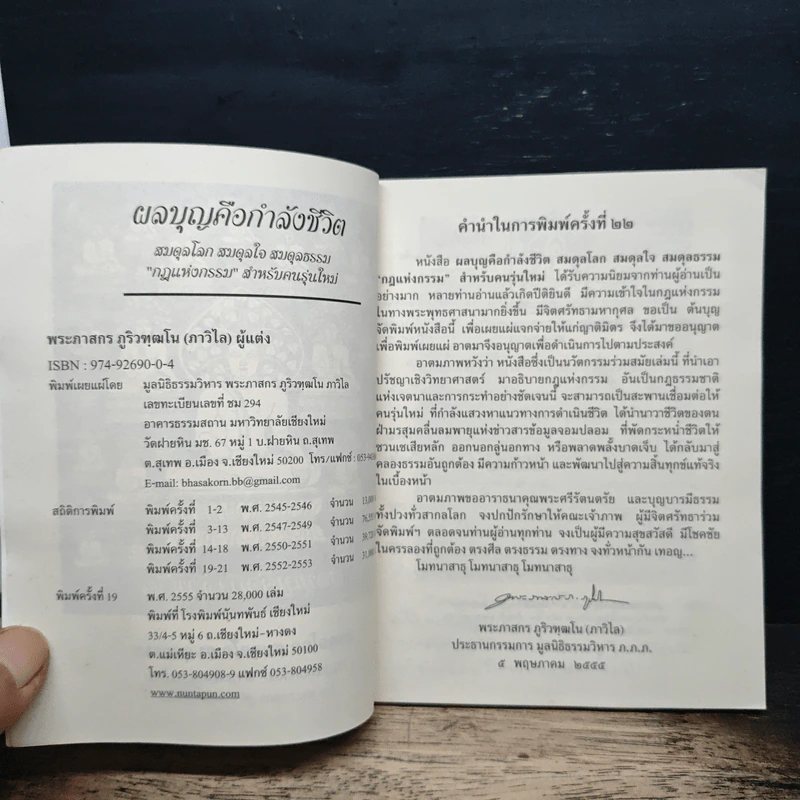 ผลบุญคือกำลังชีวิต
สมดุลโลก สมดุลใจ สมดุลธรรม
"กฎแห่งกรรม" สำหรับคนรุ่นใหม่
พระภาสกร ภูริวฑฺฒโน (ภาวิไล) ผู้แต่ง
ISBN : 974-92690-0-4
พิมพ์เผยแผ่โดย มูลนิธิธรรมวิหาร พระภาสกร ภูริวฑฺฒโน ภาวิไล
เลขทะเบียนเลขที่ ชม 294
อาคารธรรมสถาน มหาวิทยาลัยเชียงใหม่
วัดฝายหิน มช. 67 หมู่ 1 บ.ฝายหิน ถ.สุเทพ
ต.สุเทพ อ.เมือง จ.เชียงใหม่ 50200 โทร/แฟกซ์ :
E-mail: bhasakorn.bb@gmail.com
สถิติการพิมพ์ พิมพ์ครั้งที่ 1-2 พ.ศ. 2545-2546 จำนวน
พิมพ์ครั้งที่ 3-13 พ.ศ. 2547-2549 จำนวน
พิมพ์ครั้งที่ 14-18 พ.ศ. 2550-2551 จำนวน
พิมพ์ครั้งที่ 19-21 พ.ศ. 2552-2553 จำนวน
พิมพ์ครั้งที่ 19 พ.ศ. 2555 จำนวน 28,000 เล่ม
พิมพ์ที่ โรงพิมพ์นันทพันธ์ เชียงใหม่
33/4-5 หมู่ 6 ถ.เชียงใหม่-หางดง
ต.แม่เหียะ อ.เมือง จ.เชียงใหม่ 50100
โทร. 053-804908-9 แฟกซ์ 053-804958
www.nuntapun.com
คำนำในการพิมพ์ครั้งที่ ๒๒
หนังสือ ผลบุญคือกำลังชีวิต สมดุลโลก สมดุลใจ สมดุลธรรม
"กฎแห่งกรรม" สำหรับคนรุ่นใหม่ ได้รับความนิยมจากท่านผู้อ่านเป็น
อย่างมาก หลายท่านอ่านแล้วเกิดปีติยินดี มีความเข้าใจในกฎแห่งกรรม
ในทางพระพุทธศาสนามากยิ่งขึ้น มีจิตศรัทธามหากุศล ขอเป็น ต้นบุญ
จัดพิมพ์หนังสือนี้ เพื่อเผยแผ่แจกจ่ายให้แก่ญาติมิตร จึงได้มาขออนุญาต
เพื่อพิมพ์เผยแผ่ อาตมาจึงอนุญาตเพื่อดำเนินการไปตามประสงค์
อาตมภาพหวังว่า หนังสือซึ่งเป็นนวัตกรรมร่วมสมัยเล่มนี้ ที่นำเอา
ปรัชญาเชิงวิทยาศาสตร์ มาอธิบายกฎแห่งกรรม อันเป็นกฎธรรมชาติ
แห่งเจตนาและการกระทำอย่างชัดเจนนี้ จะสามารถเป็นสะพานเชื่อมต่อให้
คนรุ่นใหม่ ที่กำลังแสวงหาแนวทางการดำเนินชีวิต ได้นำนาวาชีวิตของตน
ฝ่ามรสุมคลื่นลมพายุแห่งข่าวสารข้อมูลจอมปลอม ที่พัดกระหน่ำชีวิตให้
ซวนเซเสียหลัก ออกนอกลู่นอกทาง หรือพลาดพลั้งบาดเจ็บ ได้กลับมาสู่
คลองธรรมอันถูกต้อง มีความก้าวหน้า และพัฒนาไปสู่ความสิ้นทุกข์แท้จริง
ในเบื้องหน้า
อาตมภาพขออาราธนาคุณพระศรีรัตนตรัย และบุญบารมีธรรม
ทั้งปวงทั่วสากลโลก จงปกปักรักษาให้คณะเจ้าภาพ ผู้มีจิตศรัทธาร่วม
จัดพิมพ์ฯ ตลอดจนท่านผู้อ่านทุกท่าน จงเป็นผู้มีความสุขสวัสดี มีโชคชัย
ในครรลองที่ถูกต้อง ตรงศีล ตรงธรรม ตรงทาง จงทั่วหน้ากัน เทอญ...
โมทนาสาธุ โมทนาสาธุ โมทนาสาธุ
พระภาสกร ภูริวฑฺฒโน (ภาวิไล)
ประธานกรรมการ มูลนิธิธรรมวิหาร ภ.ภ.ภ.
๕ พฤษภาคม ๒๕๕๕